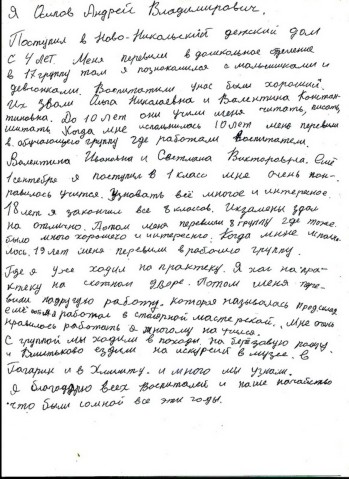 Я Осипов Андрей Владимирович.
Поступил в Ново-Никольский детский дом
с 4 лет. Меня перевили в дошкольное отделение
в 13 группу там я познакомился с мальчиками и
девчонками. Воспитатили у нас были хорошии.
Их звали Николаевна и Валентина Констан-
тиновна. До 10 лет они учили меня читать, писать,
щитать. Когда мне исполнилось 10 лет меня перевили
в обучающего группу где работали воспитатели.
Валентина Ивановна и Светлана Викторовна.
1 сентебря я поступил в 1 класс мне очень пон-
равилось учится. Узновать всё многое и интересное.
18 лет я закончил все 8 класов. Икзамены здал
на отлично. Потом меня перевили в группу где тоже
было много хорошего и интересного. Когда мне испол-
лось 19 лет меня перевили в рабочию группу.
Где я уже ходил на практеку. Я был на пра-
ктеку на скотном дворе. Потом меня пере-
вили на другую работу, которая называлась
ещё я работал в столярной мастерской. Мне очень
нравилось работать я многому научился.
С группой мы ходили в походы, на берёзовую рощу.
и ездили на искурсии в музее. в
Гагарин и в и много мы узнали.
Я благодарю всех Воспиталей и наше начайство
что были со мной все эти годы.